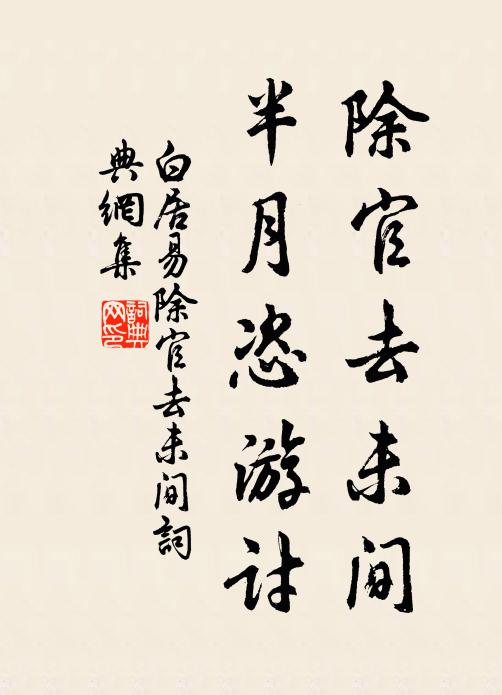 除官去未间
半月恣游讨
白居易除官去未间词
典網集
詞典
网印